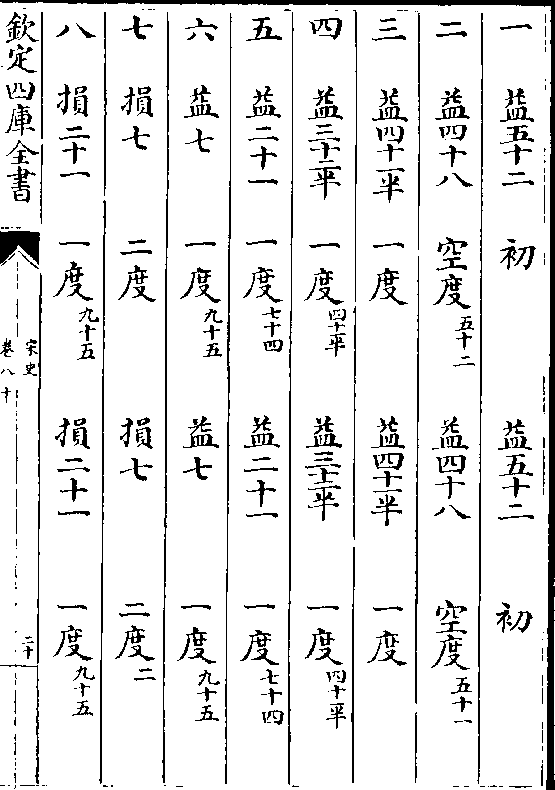 一　益五十二　初　益五十二　初
二　益四十八　空度五十二　益四十八　空度五十一
三　益四十一半　一度　益四十一半　一度
四　益三十二半　一度四十一半　益三十二半　一度四十一半
五　益二十一　一度七十四　益二十一　一度七十四
六　益七　一度九十五　益七　一度九十五
七　損七　二度　損七　二度二
八　損二十一　一度九十五　損二十一　一度九十五
欽定四庫全書
宋史
卷八十
二十